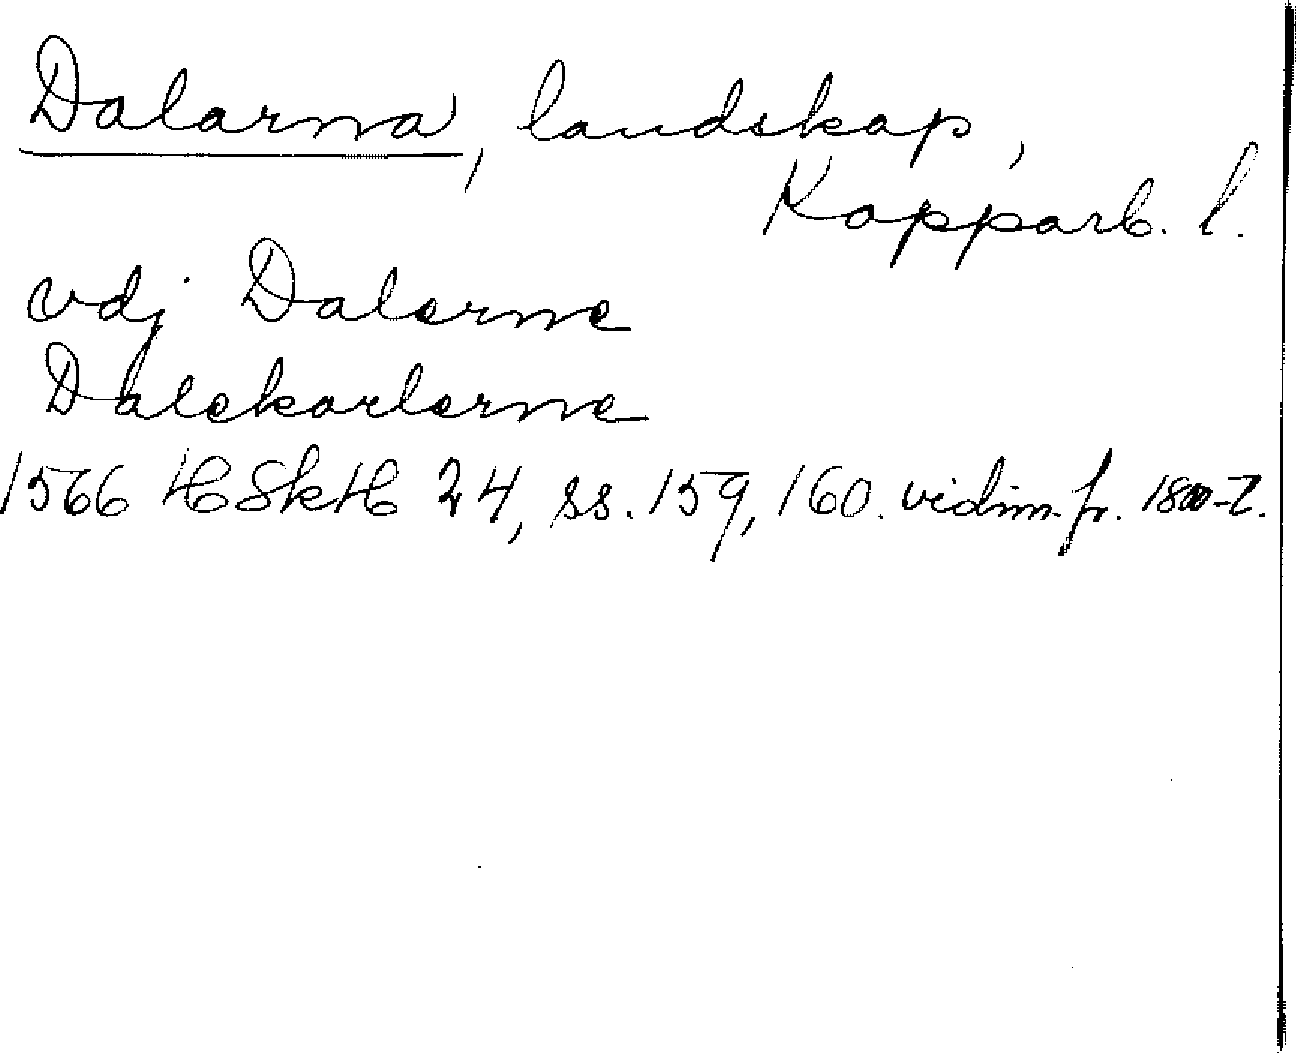 Dalarna, landskap,
Kopparb. l.
vdj Dalerne
Dalekarlerne
1566 HSkH 24, ss. 159, 160. vidim. fr. 1800-t.